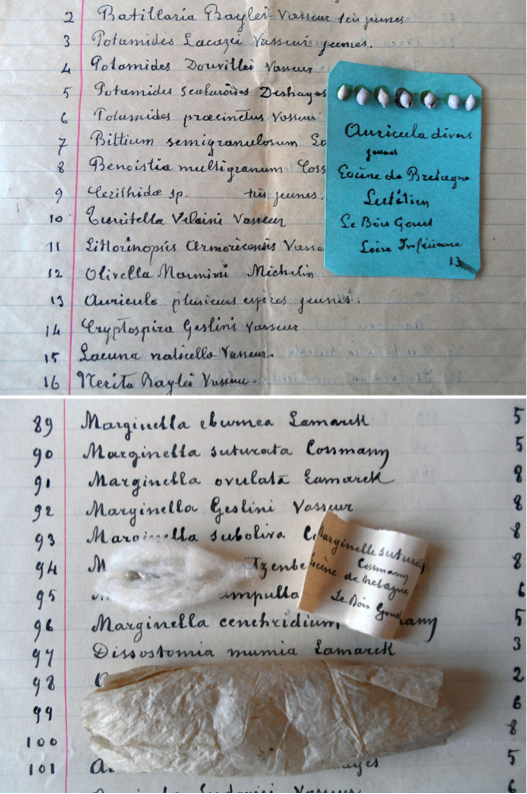 2 Batillaria Baylei Vasseur très jeunes
3 Potamides Lacazei Vasseur jeunes.
4 Potamides Douvillei Vasseur
5 Potamides scalaroides Deshayes
6 Potamides præcinctus Vasseur
7 Bittium semigranulosum
8 Benoistia multigranum Coss
9 Cerithidæ sp. très jeunes.
10 Turritella Velaini Vasseur
11 Littorinopsis Armoricensis Vasse
12 Olivella Marmini Michelin
13 Auricule plusieurs espèces jeunes.
14 Cryptospira Geslini Vasseur
15 Lacuna naticella Vasseur
16 Nerita Baylei Vasseur
Auricula divers
jeunes
Eocène de Bretagne
Lutétien
Le Bois Gouet
Loire Inférieure
13
89 Marginella eburnea Lamarck 5
90 Marginella suturata Cossmann 5
91 Marginella ovulata Lamarck 8
92 Marginella Geslini Vasseur 8
93 Marginella suboliva 8
94 8
95 ampulla 6
96 Marginella cenchridium 5
97 Dissostomia mumia Lamarck 3
98 2
99 6
100 8
101 5
6
Marginella suturata
Cossmann
Eocène de Bretagne
Le Bois Gouet